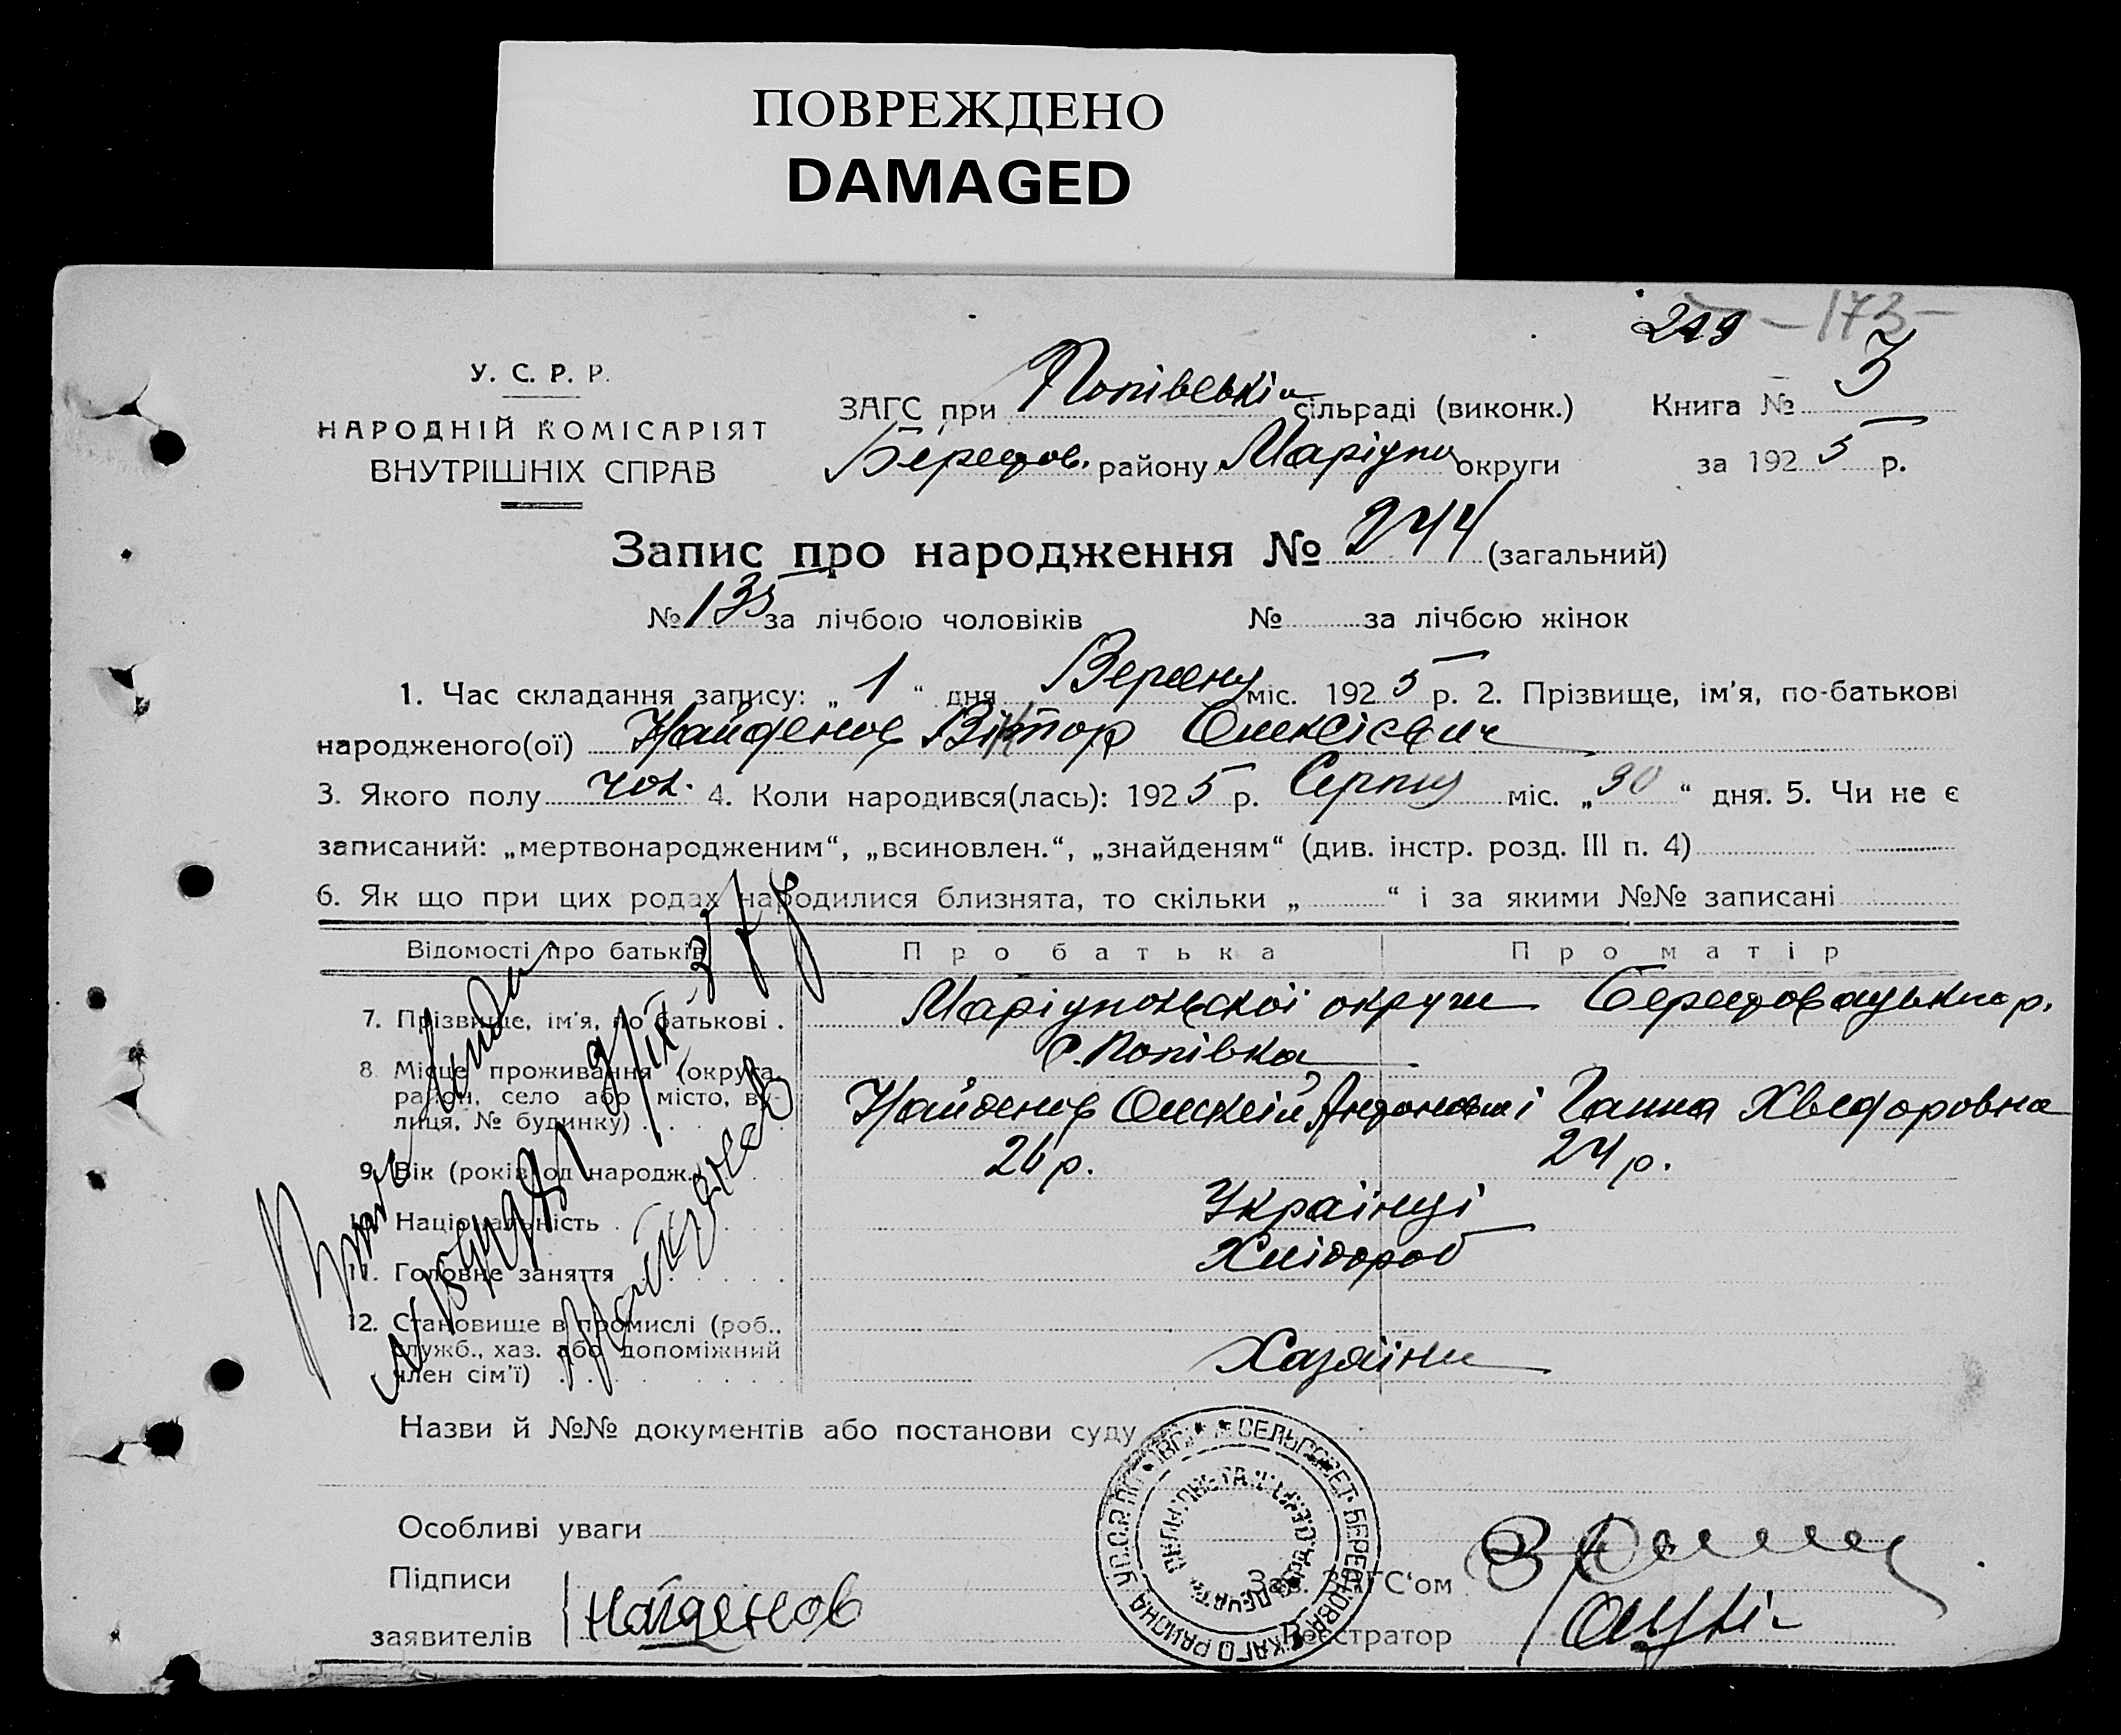 ПОВРЕЖДЕНО
DAMAGED
249 – 173 –
У. С. Р. Р.
НАРОДНІЙ КОМІСАРІЯТ
ВНУТРІШНІХ СПРАВ
ЗАГС при Попівській сільраді (виконк.)
Книга № 3
Берестов. району Маріуп округи
за 1925 р.
Запис про народження № 244 (загальний)
№ 135 за лічбою чоловіків № за лічбою жінок
1. Час складання запису: „ 1 “ дня Вересну міс. 1925 р. 2. Прізвище, ім'я, по-батькові
народженого(ої) Найденов Віктор Олексієвич
3. Якого полу чол. 4. Коли народився(лась): 1925 р. Серпну міс. „30“ дня. 5. Чи не є
записаний: „мертвонародженим“, „всиновлен.“, „знайденям“ (див. інстр. розд. III п. 4)
6. Як що при цих родах народилися близнята, то скільки „ “ і за якими №№ записані
Відомості про батьків Про батька Про матір
7. Прізвище, ім'я, по батькові . Маріупольської округи Берестовацького р.
с. Попівка
8. Місце проживання (округа,
район, село або місто, ву-
лиця, № будинку) Найденов Олексій Антонович і Ганна Хведоровна
9. Вік (років) од народж. 26 р. 24 р.
10. Національність Українці
11. Головне заняття Хлібороб
12. Становище в промислі (роб.,
служб., хаз. або допоміжний
член сім'ї) Хазяіни
Найденов
Назви й №№ документів або постанови суду
Особливі уваги
Підписи
заявителів Найденов
Зав. ЗАГС‘ом
Реєстратор
СЕЛЬСОВЕТ БЕРЕСТОВАЦКАГО РАЙОНА У.С.С.Р.